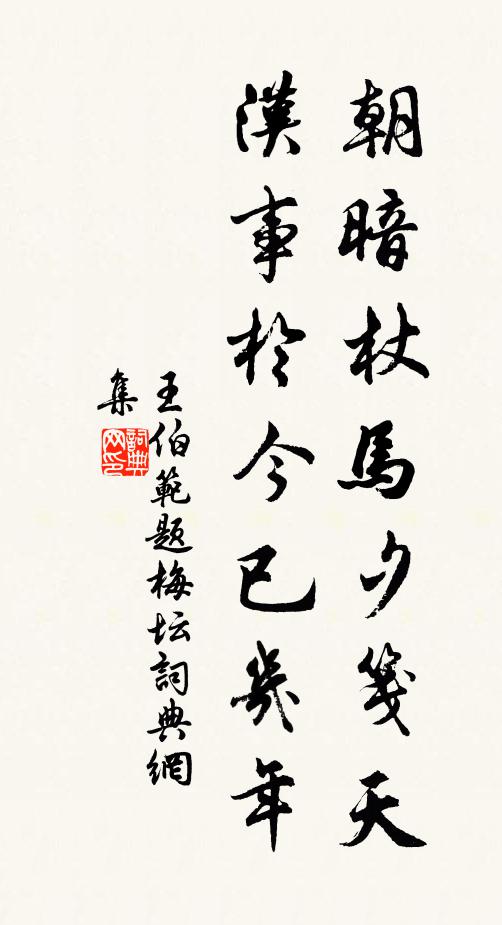 朝暗杖馬夕箋天
漢事於今已幾年
王伯範題梅坛詞典網
集
詞典
网印